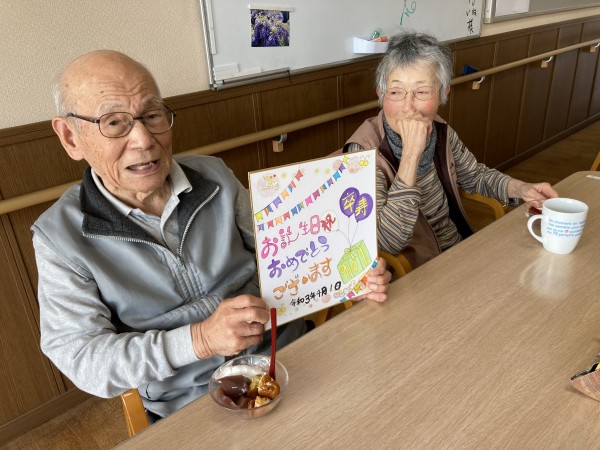 卒寿
お誕生日祝
おめでとう
ございます
令和3年4月1日